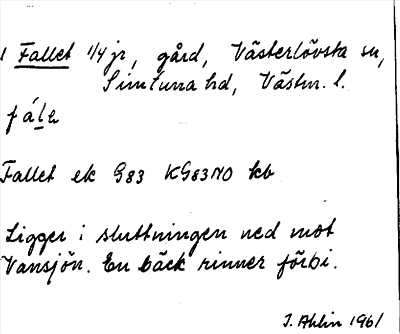 1 Fallet 1/4 jr, gård, Västerlövsta sn,
Simtuna hd, Västm. l.
fál̲e
Fallet ek G83 KG83NO kb
Ligger i sluttningen ned mot
Vansjön. En bäck rinner förbi.
I. Ahlin 1961